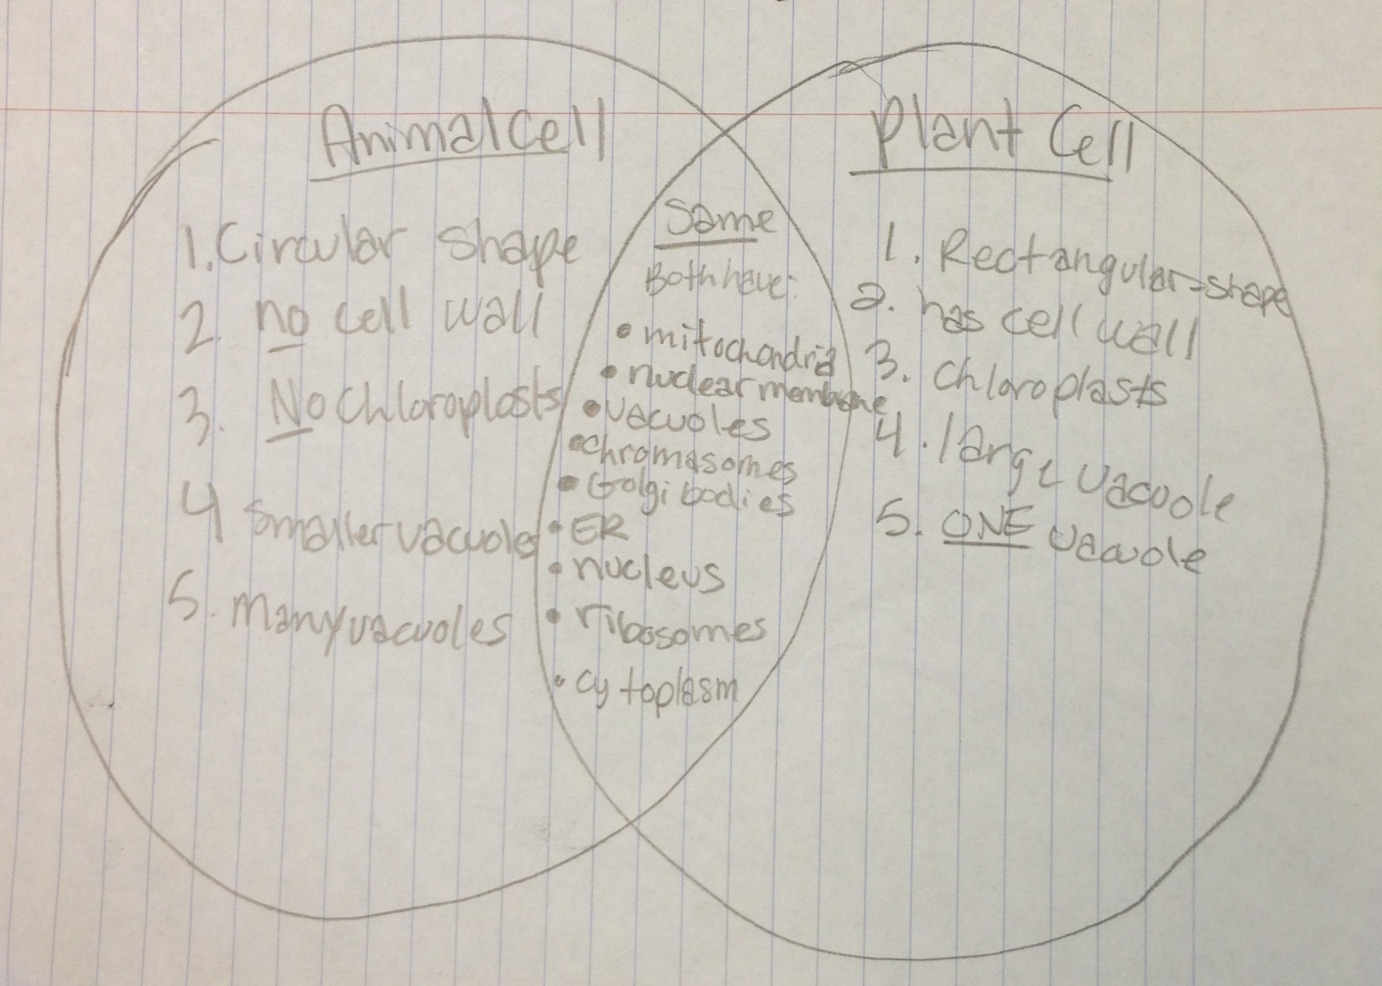 Animal Cell
1. Circular shape
2. no cell wall
3. No Chloroplasts
4 smaller vacuoles
5. many vacuoles
Same
Both have:
• mitochondria
• nuclear membrane
• vacuoles
• chromasomes
• Golgi bodies
• ER
• nucleus
• ribosomes
• cytoplasm
Plant Cell
1. Rectangular-shape
2. has cell wall
3. chloroplasts
4. large vacuole
5. ONE vacuole